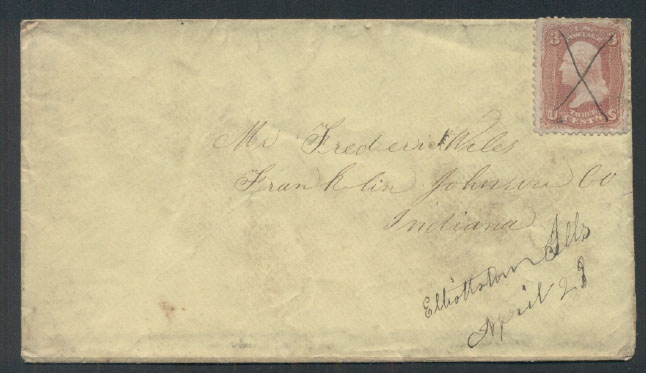 3 3
U.S.
POSTAGE
THREE
U CENTS S
Mr Frederic Wiles
Franklin Johnson Co
Indiana
Elliottstown Ills
April 28